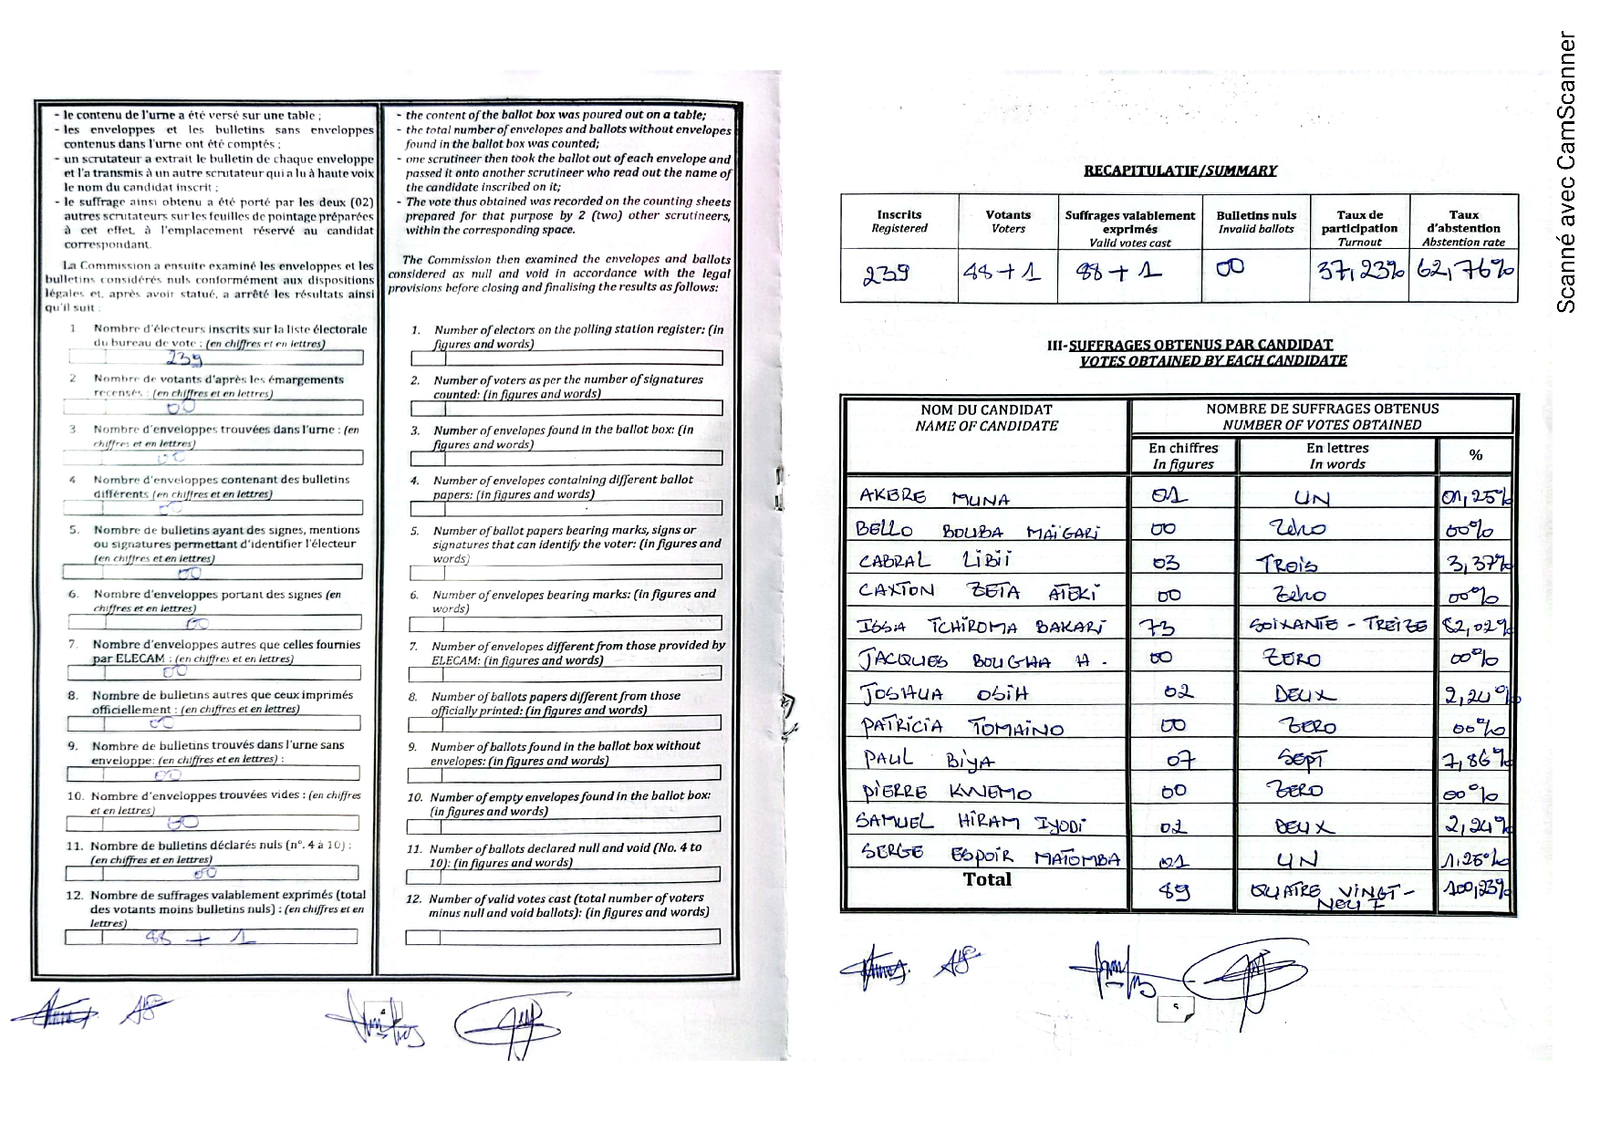 - le contenu de l'urne a été versé sur une table ;
- les enveloppes et les bulletins sans enveloppes
contenus dans l'urne ont été comptés ;
- un scrutateur a extrait le bulletin de chaque enveloppe
et l'a transmis à un autre scrutateur qui a lu à haute voix
le nom du candidat inscrit ;
- le suffrage ainsi obtenu a été porté par les deux (02)
autres scrutateurs sur les feuilles de pointage préparées
à cet effet, à l'emplacement réservé au candidat
correspondant.
La Commission a ensuite examiné les enveloppes et les
bulletins considérés nuls conformément aux dispositions
légales et, après avoir statué, a arrêté les résultats ainsi
qu'il suit :
1 Nombre d'électeurs inscrits sur la liste électorale
du bureau de vote : (en chiffres et en lettres)
239
2 Nombre de votants d'après les émargements
recensés : (en chiffres et en lettres)
00
3 Nombre d'enveloppes trouvées dans l'urne : (en
chiffres et en lettres)
00
4 Nombre d'enveloppes contenant des bulletins
différents (en chiffres et en lettres)
00
5. Nombre de bulletins ayant des signes, mentions
ou signatures permettant d'identifier l'électeur
(en chiffres et en lettres)
00
6. Nombre d'enveloppes portant des signes (en
chiffres et en lettres)
00
7. Nombre d'enveloppes autres que celles fournies
par ELECAM : (en chiffres et en lettres)
00
8. Nombre de bulletins autres que ceux imprimés
officiellement : (en chiffres et en lettres)
00
9. Nombre de bulletins trouvés dans l'urne sans
enveloppe: (en chiffres et en lettres) :
00
10. Nombre d'enveloppes trouvées vides : (en chiffres
et en lettres)
00
11. Nombre de bulletins déclarés nuls (n°. 4 à 10) :
(en chiffres et en lettres)
00
12. Nombre de suffrages valablement exprimés (total
des votants moins bulletins nuls) : (en chiffres et en
lettres)
88 + 1
- the content of the ballot box was poured out on a table;
- the total number of envelopes and ballots without envelopes
found in the ballot box was counted;
- one scrutineer then took the ballot out of each envelope and
passed it onto another scrutineer who read out the name of
the candidate inscribed on it;
- The vote thus obtained was recorded on the counting sheets
prepared for that purpose by 2 (two) other scrutineers,
within the corresponding space.
The Commission then examined the envelopes and ballots
considered as null and void in accordance with the legal
provisions before closing and finalising the results as follows:
1. Number of electors on the polling station register: (in
figures and words)
2. Number of voters as per the number of signatures
counted: (in figures and words)
3. Number of envelopes found in the ballot box: (in
figures and words)
4. Number of envelopes containing different ballot
papers: (in figures and words)
5. Number of ballot papers bearing marks, signs or
signatures that can identify the voter: (in figures and
words)
6. Number of envelopes bearing marks: (in figures and
words)
7. Number of envelopes different from those provided by
ELECAM: (in figures and words)
8. Number of ballots papers different from those
officially printed: (in figures and words)
9. Number of ballots found in the ballot box without
envelopes: (in figures and words)
10. Number of empty envelopes found in the ballot box:
(in figures and words)
11. Number of ballots declared null and void (No. 4 to
10): (in figures and words)
12. Number of valid votes cast (total number of voters
minus null and void ballots): (in figures and words)
RECAPITULATIF/SUMMARY
Inscrits Registered Votants Voters Suffrages valablement exprimés Valid votes cast Bulletins nuls Invalid ballots Taux de participation Turnout Taux d'abstention Abstention rate
239 88 + 1 88 + 1 00 37,23% 62,76%
III- SUFFRAGES OBTENUS PAR CANDIDAT
VOTES OBTAINED BY EACH CANDIDATE
NOM DU CANDIDAT NOMBRE DE SUFFRAGES OBTENUS
NAME OF CANDIDATE NUMBER OF VOTES OBTAINED
En chiffres En lettres %
In figures In words
AKERE MUNA 01 UN 01,25%
BELLO BOUBA MAÏGARI 00 Zéro 00%
CABRAL LIBII 03 TROIS 3,37%
CAXTON ZETA ATEKI 00 Zéro 00%
ISSA TCHIROMA BAKARI 73 SOIXANTE - TREIZE 82,02%
JACQUES BOUGHA H. 00 ZERO 00%
JOSHUA OSIH 02 DEUX 2,24%
PATRICIA TOMAINO 00 ZERO 00%
PAUL BIYA 07 SEPT 7,86%
PIERRE KWEMO 00 ZERO 00%
SAMUEL HIRAM IYODI 02 DEUX 2,24%
SERGE ESPOIR MATOMBA 01 UN 1,25%
Total 89 QUATRE VINGT - NEUF 100,23%
Scanné avec CamScanner